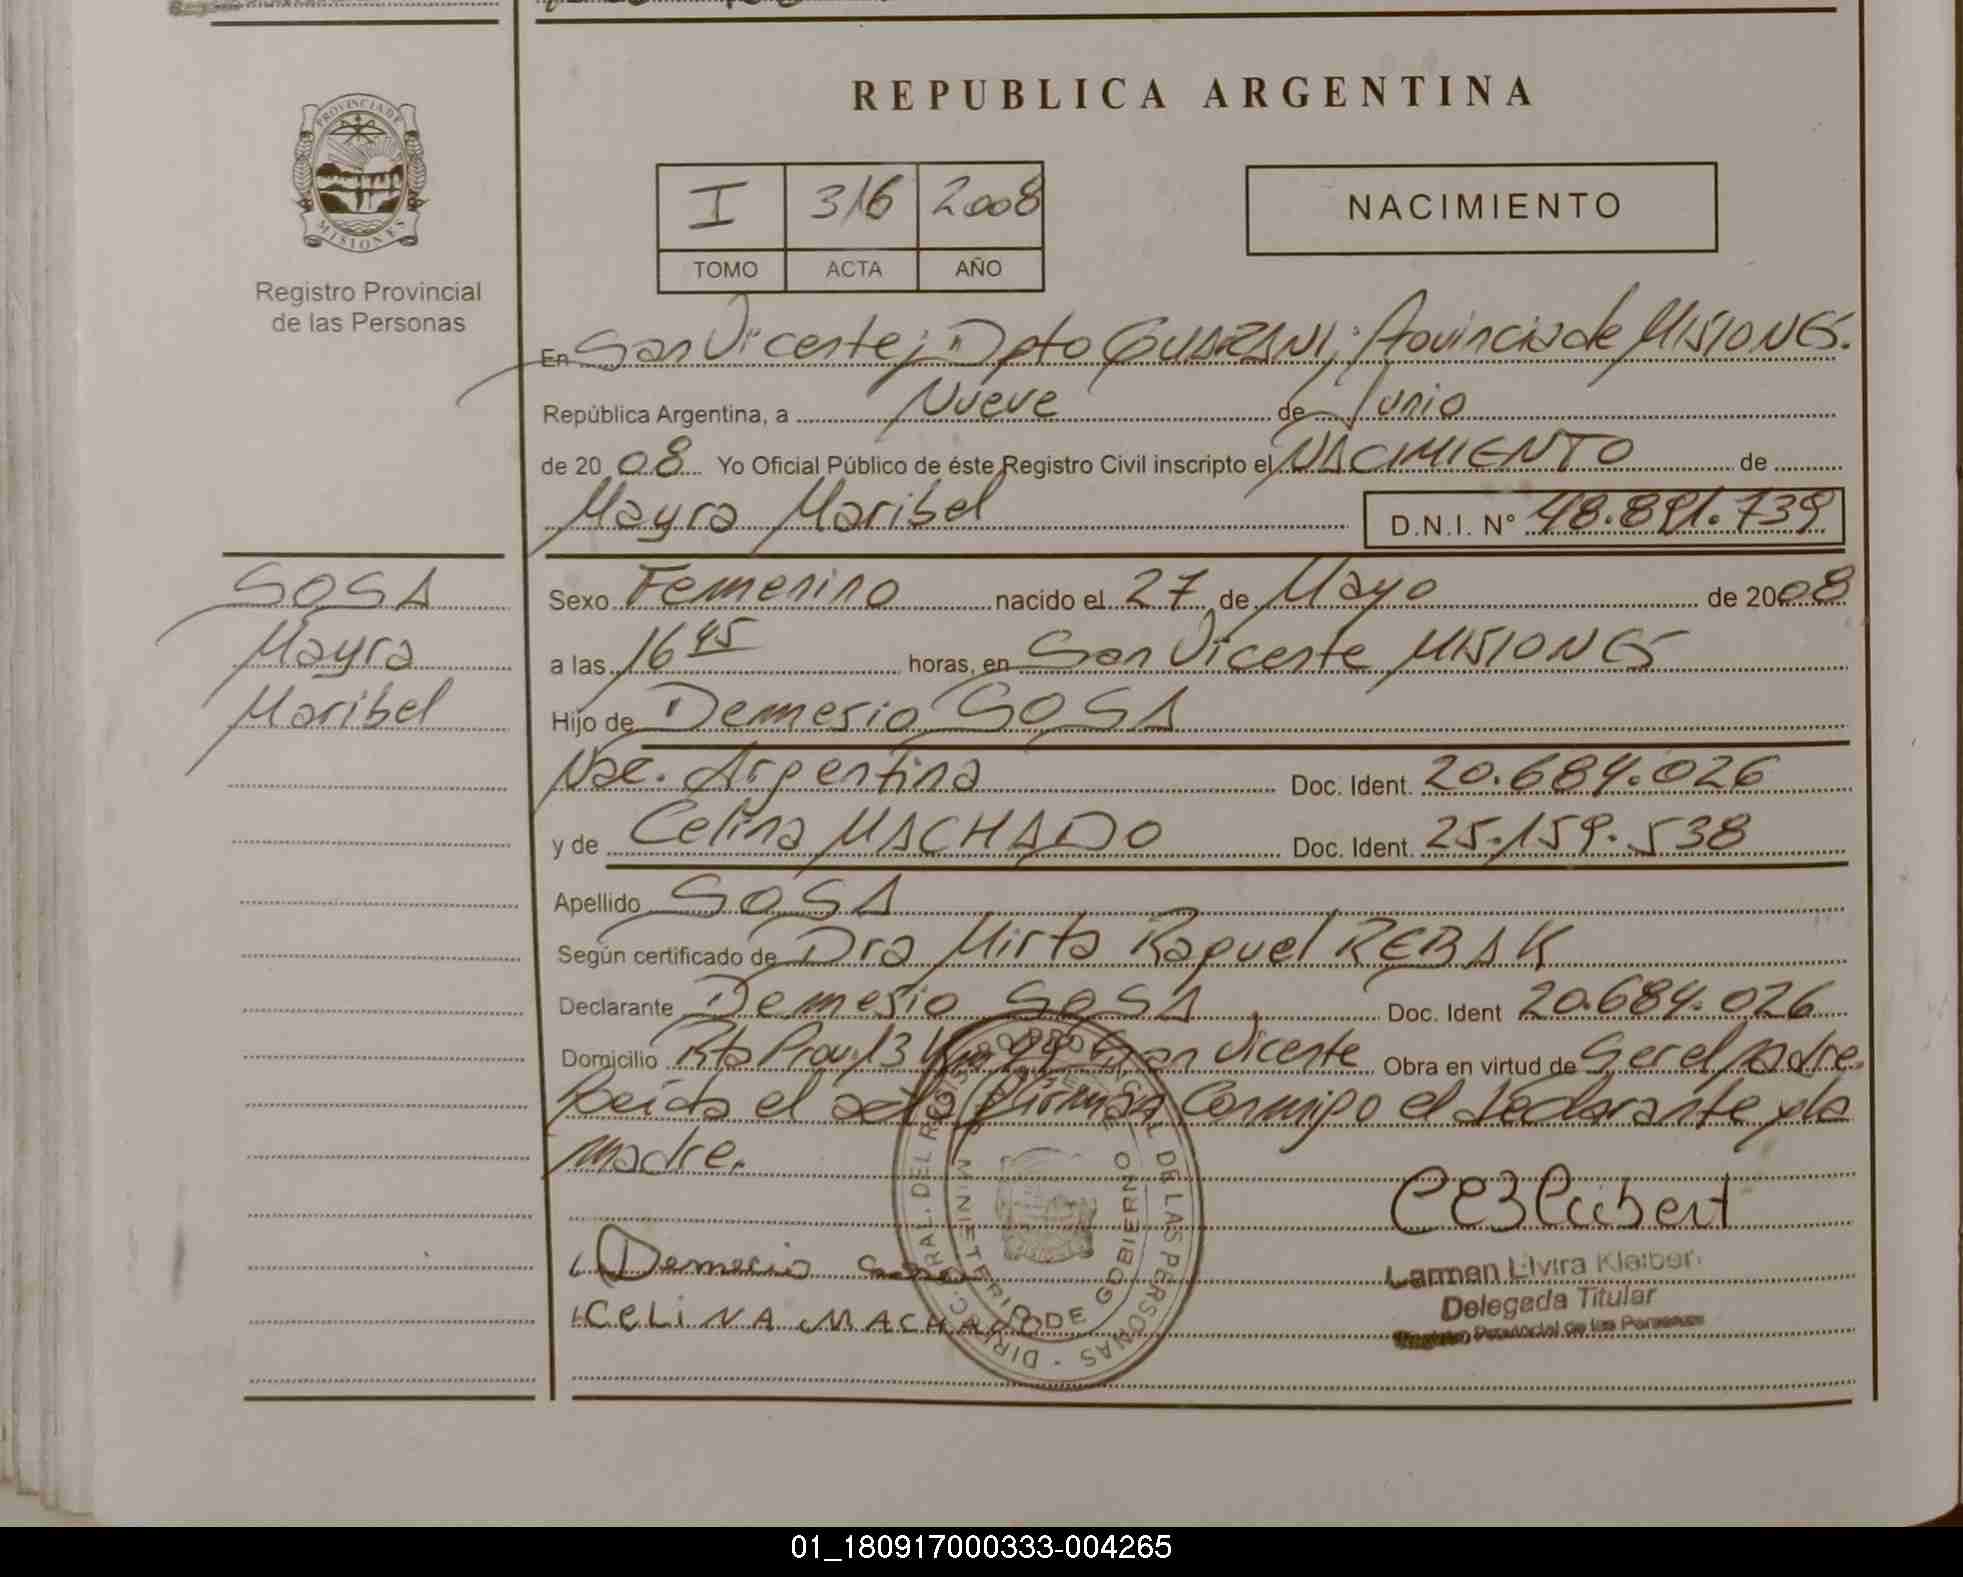 REPUBLICA ARGENTINA
PROVINCIA DE MISIONES
Registro Provincial
de las Personas
I 316 2008
TOMO ACTA AÑO
NACIMIENTO
En San Vicente; Dpto GUARANI; Provincia de MISIONES.
República Argentina, a Nueve de Junio
de 20 08 Yo Oficial Público de éste Registro Civil inscripto el NACIMIENTO de
Mayra Maribel D.N.I. Nº 48.891.739
SOSA
Mayra
Maribel
Sexo Femenino nacido el 27 de Mayo de 2008
a las 16 45 horas, en San Vicente MISIONES
Hijo de Demesio SOSA
Nac. Argentina Doc. Ident. 20.684.026
y de Celina MACHADO Doc. Ident. 25.159.538
Apellido SOSA
Según certificado de Dra Mirta Raquel REBAK
Declarante Demesio SOSA Doc. Ident 20.684.026
Domicilio Rta Prov. 13 San Vicente Obra en virtud de Ser el padre.
Leida el acta Firman Conmigo el declarante y la
madre.
Demecio
CELINA MACHADO
DIRECC. GRAL. DEL REGISTRO PROVINCIAL DE LAS PERSONAS
MINISTERIO DE GOBIERNO
Carmen Elvira Kleibert
Delegada Titular
Registro Provincial de las Personas
01_180917000333-004265